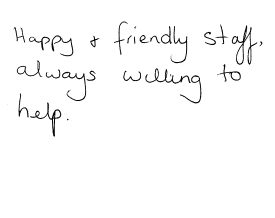 Happy & friendly staff,
always willing to
help.